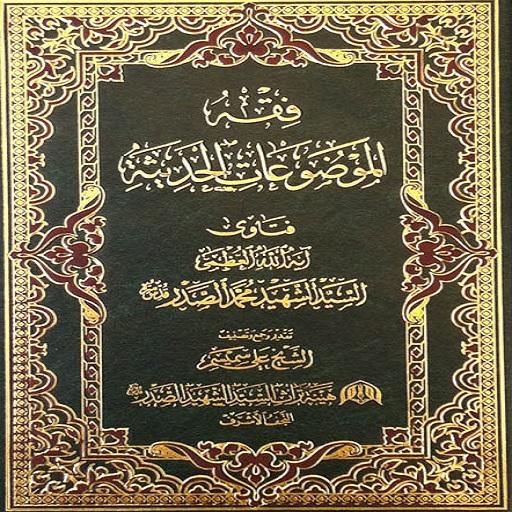 فِقْهُ
المَوْضُوعَاتِ الحَدِيثَةِ
فتاوى
آية الله العظمى
السيد الشهيد محمد الصدر
تقديم وجمع وتصنيف
الشيخ علي سميسم
هيئة تراث السيد الشهيد الصدر
النجف الأشرف